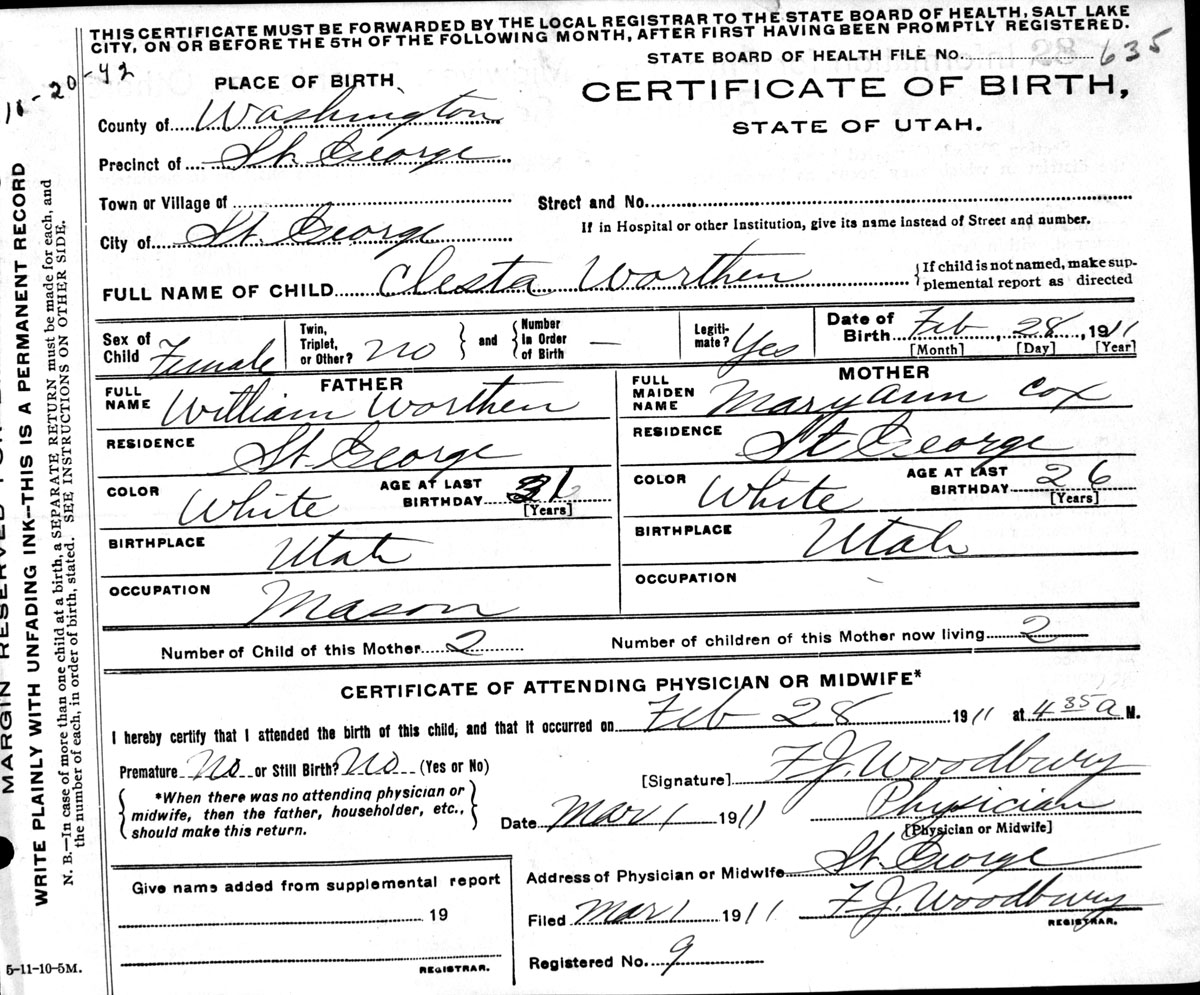 THIS CERTIFICATE MUST BE FORWARDED BY THE LOCAL REGISTRAR TO THE STATE BOARD OF HEALTH, SALT LAKE
CITY, ON OR BEFORE THE 5TH OF THE FOLLOWING MONTH, AFTER FIRST HAVING BEEN PROMPTLY REGISTERED.
STATE BOARD OF HEALTH FILE No. 635
-20-42
PLACE OF BIRTH
CERTIFICATE OF BIRTH,
STATE OF UTAH.
County of Washington
Precinct of St. George
Town or Village of
Street and No.
City of St. George
If in Hospital or other Institution, give its name instead of Street and number.
FULL NAME OF CHILD Clesta Worthen
If child is not named, make sup-
plemental report as directed
Sex of Child Female
Twin, Triplet, or Other? No
and
Number in Order of Birth —
Legiti-mate? Yes
Date of Birth Feb, 28, 1911
[Month] [Day] [Year]
FATHER
FULL NAME William Worthen
RESIDENCE St. George
COLOR White
AGE AT LAST BIRTHDAY
[Years]
BIRTHPLACE Utah
OCCUPATION Mason
MOTHER
FULL MAIDEN NAME Mary Ann Cox
RESIDENCE St George
COLOR White
AGE AT LAST BIRTHDAY 26
[Years]
BIRTHPLACE Utah
OCCUPATION
Number of Child of this Mother 2
Number of children of this Mother now living 2
CERTIFICATE OF ATTENDING PHYSICIAN OR MIDWIFE*
I hereby certify that I attended the birth of this child, and that it occurred on Feb 28 1911 at 4 35 a M.
Premature No or Still Birth? No (Yes or No)
[Signature] F. J. Woodbury
*When there was no attending physician or
midwife, then the father, householder, etc.,
should make this return.
Date Mar 1 1911
Physician
[Physician or Midwife]
Address of Physician or Midwife St. George
Give name added from supplemental report
19
REGISTRAR.
Filed Mar 1 1911 F. J. Woodbury
REGISTRAR.
Registered No. 9
MARGIN RESERVED
WRITE PLAINLY WITH UNFADING INK—THIS IS A PERMANENT RECORD
N. B.—In case of more than one child at a birth, a SEPARATE RETURN must be made for each, and
the number of each, in order of birth, stated. SEE INSTRUCTIONS ON OTHER SIDE.
5-11-10-5M.